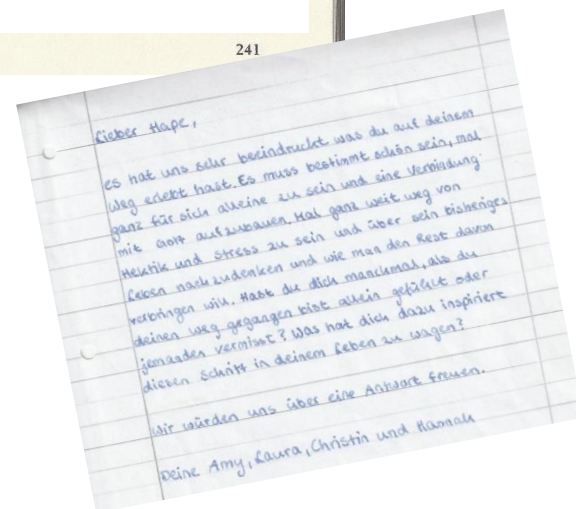 241
Lieber Hape,
es hat uns sehr beeindruckt was du auf deinem
Weg erlebt hast. Es muss bestimmt schön sein, mal
ganz für sich alleine zu sein und eine Verbindung
mit Gott aufzubauen. Mal ganz weit weg von
Hektik und Stress zu sein und über sein bisheriges
Leben nachzudenken und wie man den Rest davon
verbringen will. Habt du dich manchmal, als du
deinen Weg gegangen bist allein gefühlt oder
jemanden vermisst? Was hat dich dazu inspiriert
diesen Schritt in deinem Leben zu wagen?
Wir würden uns über eine Antwort freuen.
Deine Amy, Laura, Christin und Hannah